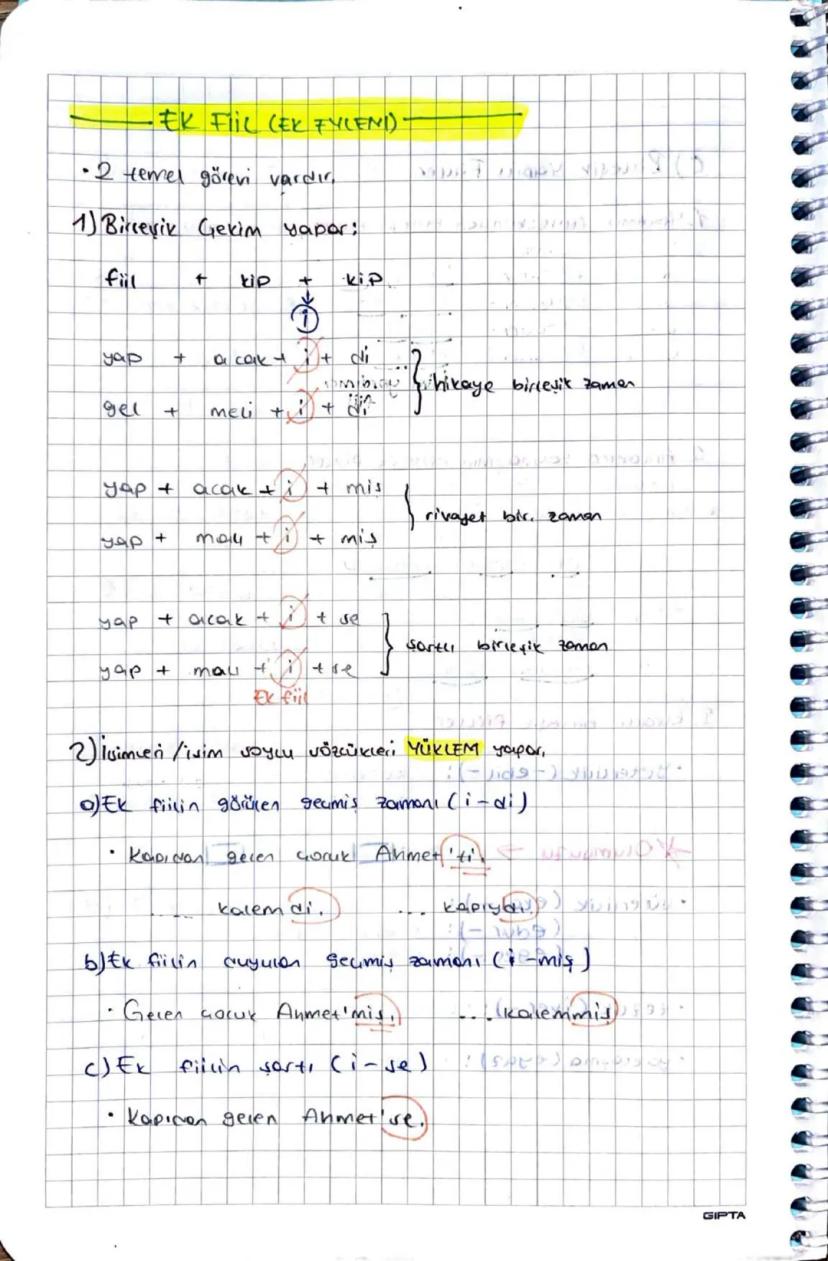 EK FİİL (EK EYLEM)
• 2 temel görevi vardır.
1) Birleşik Çekim yapar:
fiil + kip + kip
i
yap + acak + i + di
gel + meli + i + di
} hikaye birleşik zaman
yap + acak + i + miş
yap + malı + i + miş
} rivayet bir. zaman
yap + acak + i + se
yap + malı + i + se
} şartlı birleşik zaman
Ek fiil
2) İsimleri / isim soylu sözcükleri YÜKLEM yapar.
a) Ek fiilin görülen geçmiş zamanı (i-di)
• Kapıdan geçen çocuk Ahmet'ti.
.... kalemdi. ... kapıydı.
b) Ek fiilin duyulan geçmiş zamanı (i-miş)
• Gelen çocuk Ahmet'miş. .... kalemmiş
c) Ek fiilin şartı (i-se)
• Kapıdan gelen Ahmet'se.
GIPTA